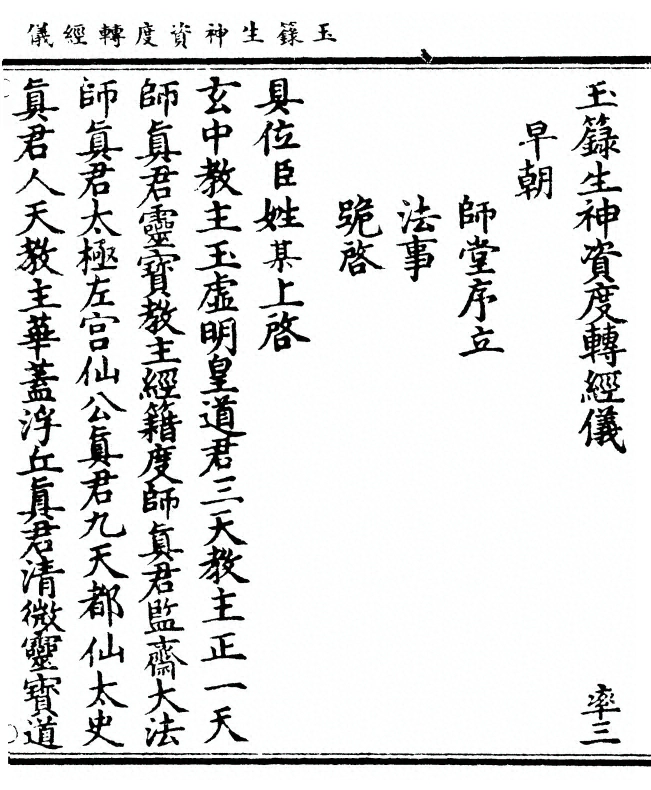 玉籙生神資度轉經儀
玉籙生神資度轉經儀
率三
早朝
師堂序立
法事
跪啓
具位臣姓某上啓
玄中教主玉虛明皇道君三天教主正一天
師眞君靈寶教主經籍度師眞君監齋大法
師眞君太極左宮仙公眞君九天都仙太史
眞君人天教主華蓋浮丘眞君清微靈寶道